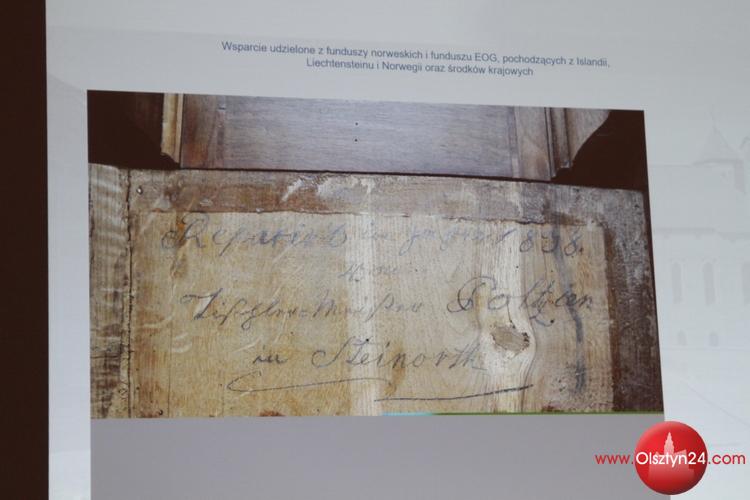 Wsparcie udzielone z funduszy norweskich i funduszu EOG, pochodzących z Islandii,
Liechtensteinu i Norwegii oraz środków krajowych
Reparirt im 1838.
von
Tischler-Meister
in Steinorth
www.Olsztyn24.com